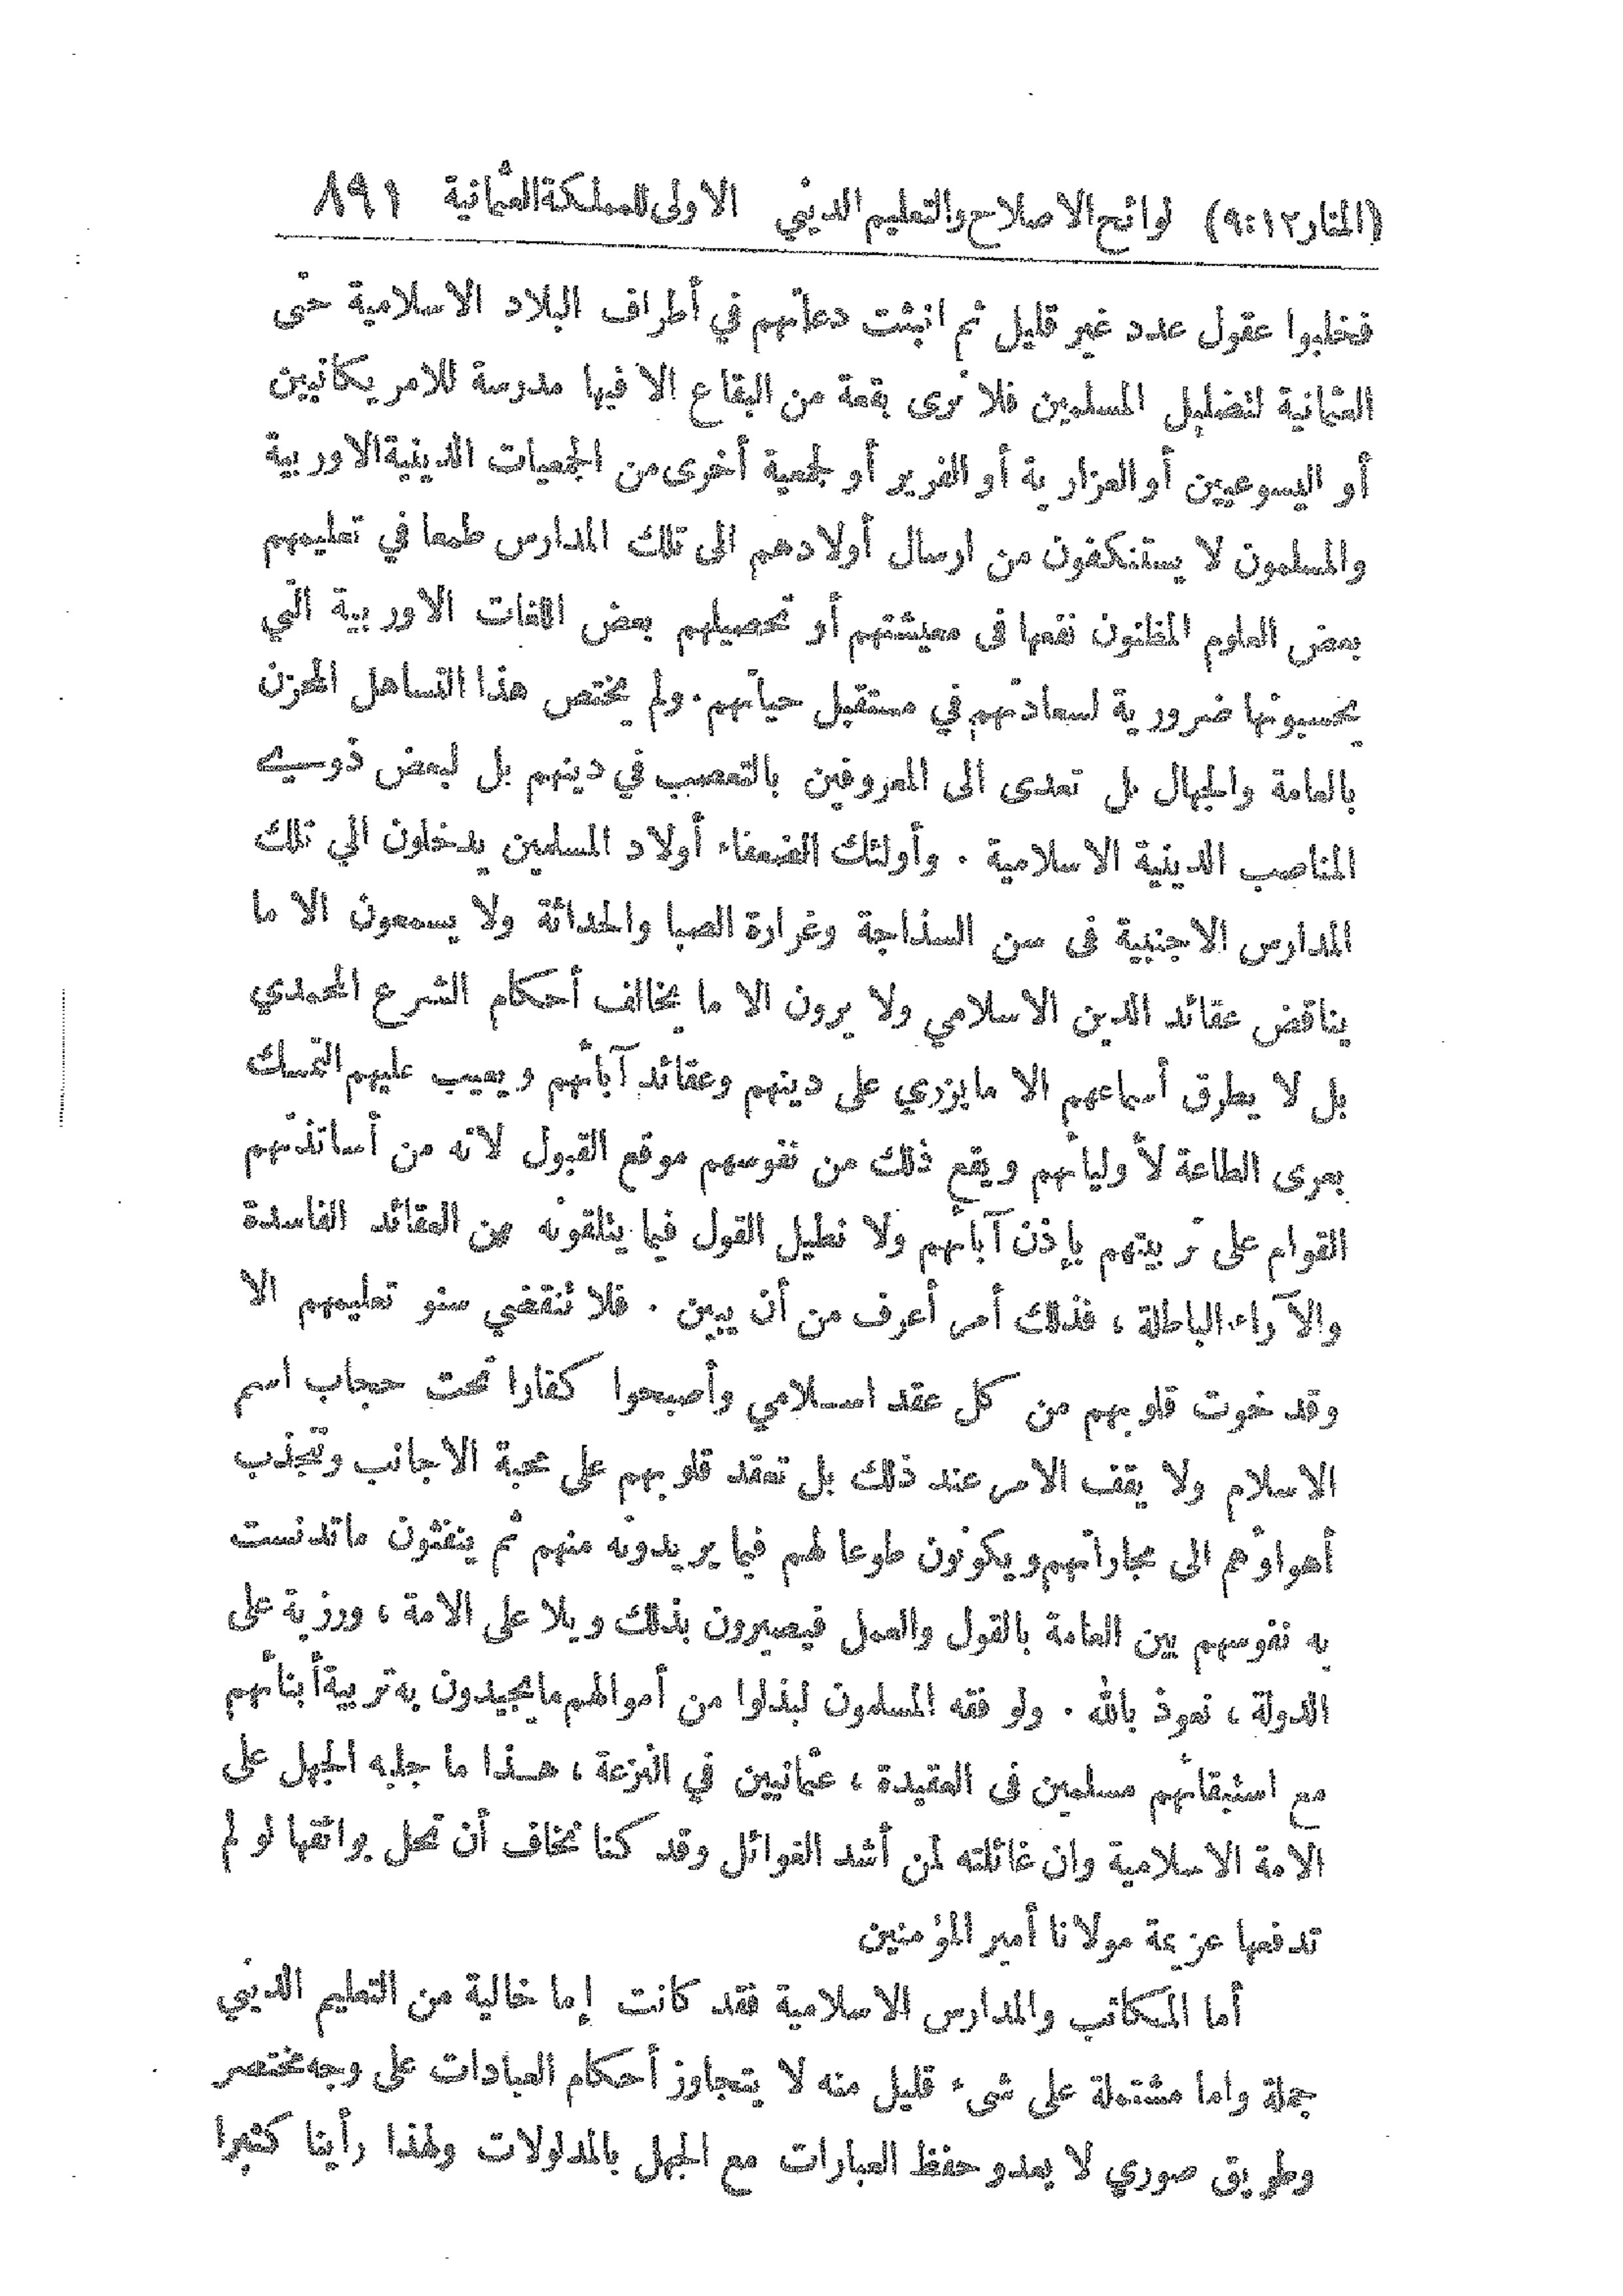 (المنار ١٢:٩) لوائح الاصلاح والتعليم الديني الاولى للمملكة العثمانية ٨٩١
فخلبوا عقول عدد غير قليل ثم انبثت دعاتهم في أطراف البلاد الاسلامية حتى
العثمانية لتضليل المسلمين فلا ترى بقعة من البقاع الا فيها مدرسة للامريكانيين
أو اليسوعيين أو العزارية أو الفرير أو لجمعية أخرى من الجمعيات الدينية الاوربية
والمسلمون لا يستنكفون من ارسال أولادهم الى تلك المدارس طمعا في تعليمهم
بعض العلوم المظنون نفعها فى معيشتهم أو تحصيلهم بعض اللغات الاوربية التي
يحسبونها ضرورية لسعادتهم في مستقبل حياتهم . ولم يختص هذا التساهل المحزن
بالعامة والجهال بل تعدى الى المعروفين بالتعصب في دينهم بل لبعض ذوي
المناصب الدينية الاسلامية . وأولئك الضعفاء أولاد المسلمين يدخلون الي تلك
المدارس الاجنبية فى سن السذاجة وغرارة الصبا والحداثة ولا يسمعون الا ما
يناقض عقائد الدين الاسلامي ولا يرون الا ما يخالف أحكام الشرع المحمدي
بل لا يطرق أسماعهم الا ما يزري على دينهم وعقائد آبائهم ويعيب عليهم التمسك
بعرى الطاعة لأوليائهم ويقع ذلك من نفوسهم موقع القبول لانه من أساتذتهم
القوام على تربيتهم بإذن آبائهم ولا نطيل القول فيما يتلقونه من العقائد الفاسدة
والآراء الباطلة ، فذلك أمر أعرف من أن يبين . فلا تنقضي سنو تعليمهم الا
وقد خوت قلوبهم من كل عقد اسلامي وأصبحوا كفارا تحت حجاب اسم
الاسلام ولا يقف الامر عند ذلك بل تعقد قلوبهم على محبة الاجانب وتنجذب
أهواؤهم الى مجاراتهم ويكونون طوعا لهم فيما يريدونه منهم ثم ينفثون ما تدنست
به نفوسهم بين العامة بالقول والعمل فيصيرون بذلك ويلا على الامة ، ورزية على
الدولة ، نعوذ بالله . ولو فقه المسلمون لبذلوا من أموالهم ما يجيدون به تربية أبنائهم
مع استبقائهم مسلمين فى العقيدة ، عثمانيين في النزعة ، هذا ما جلبه الجهل على
الامة الاسلامية وان غائلته لمن أشد الغوائل وقد كنا نخاف أن تحل بوائقها لو لم
تدفعها عزيمة مولانا أمير المؤمنين
أما المكاتب والمدارس الاسلامية فقد كانت إما خالية من التعليم الديني
جملة واما مشتملة على شىء قليل منه لا يتجاوز أحكام العبادات على وجه مختصر
وطريق صوري لا يعدو حفظ العبارات مع الجهل بالمدلولات ولهذا رأينا كثيرا